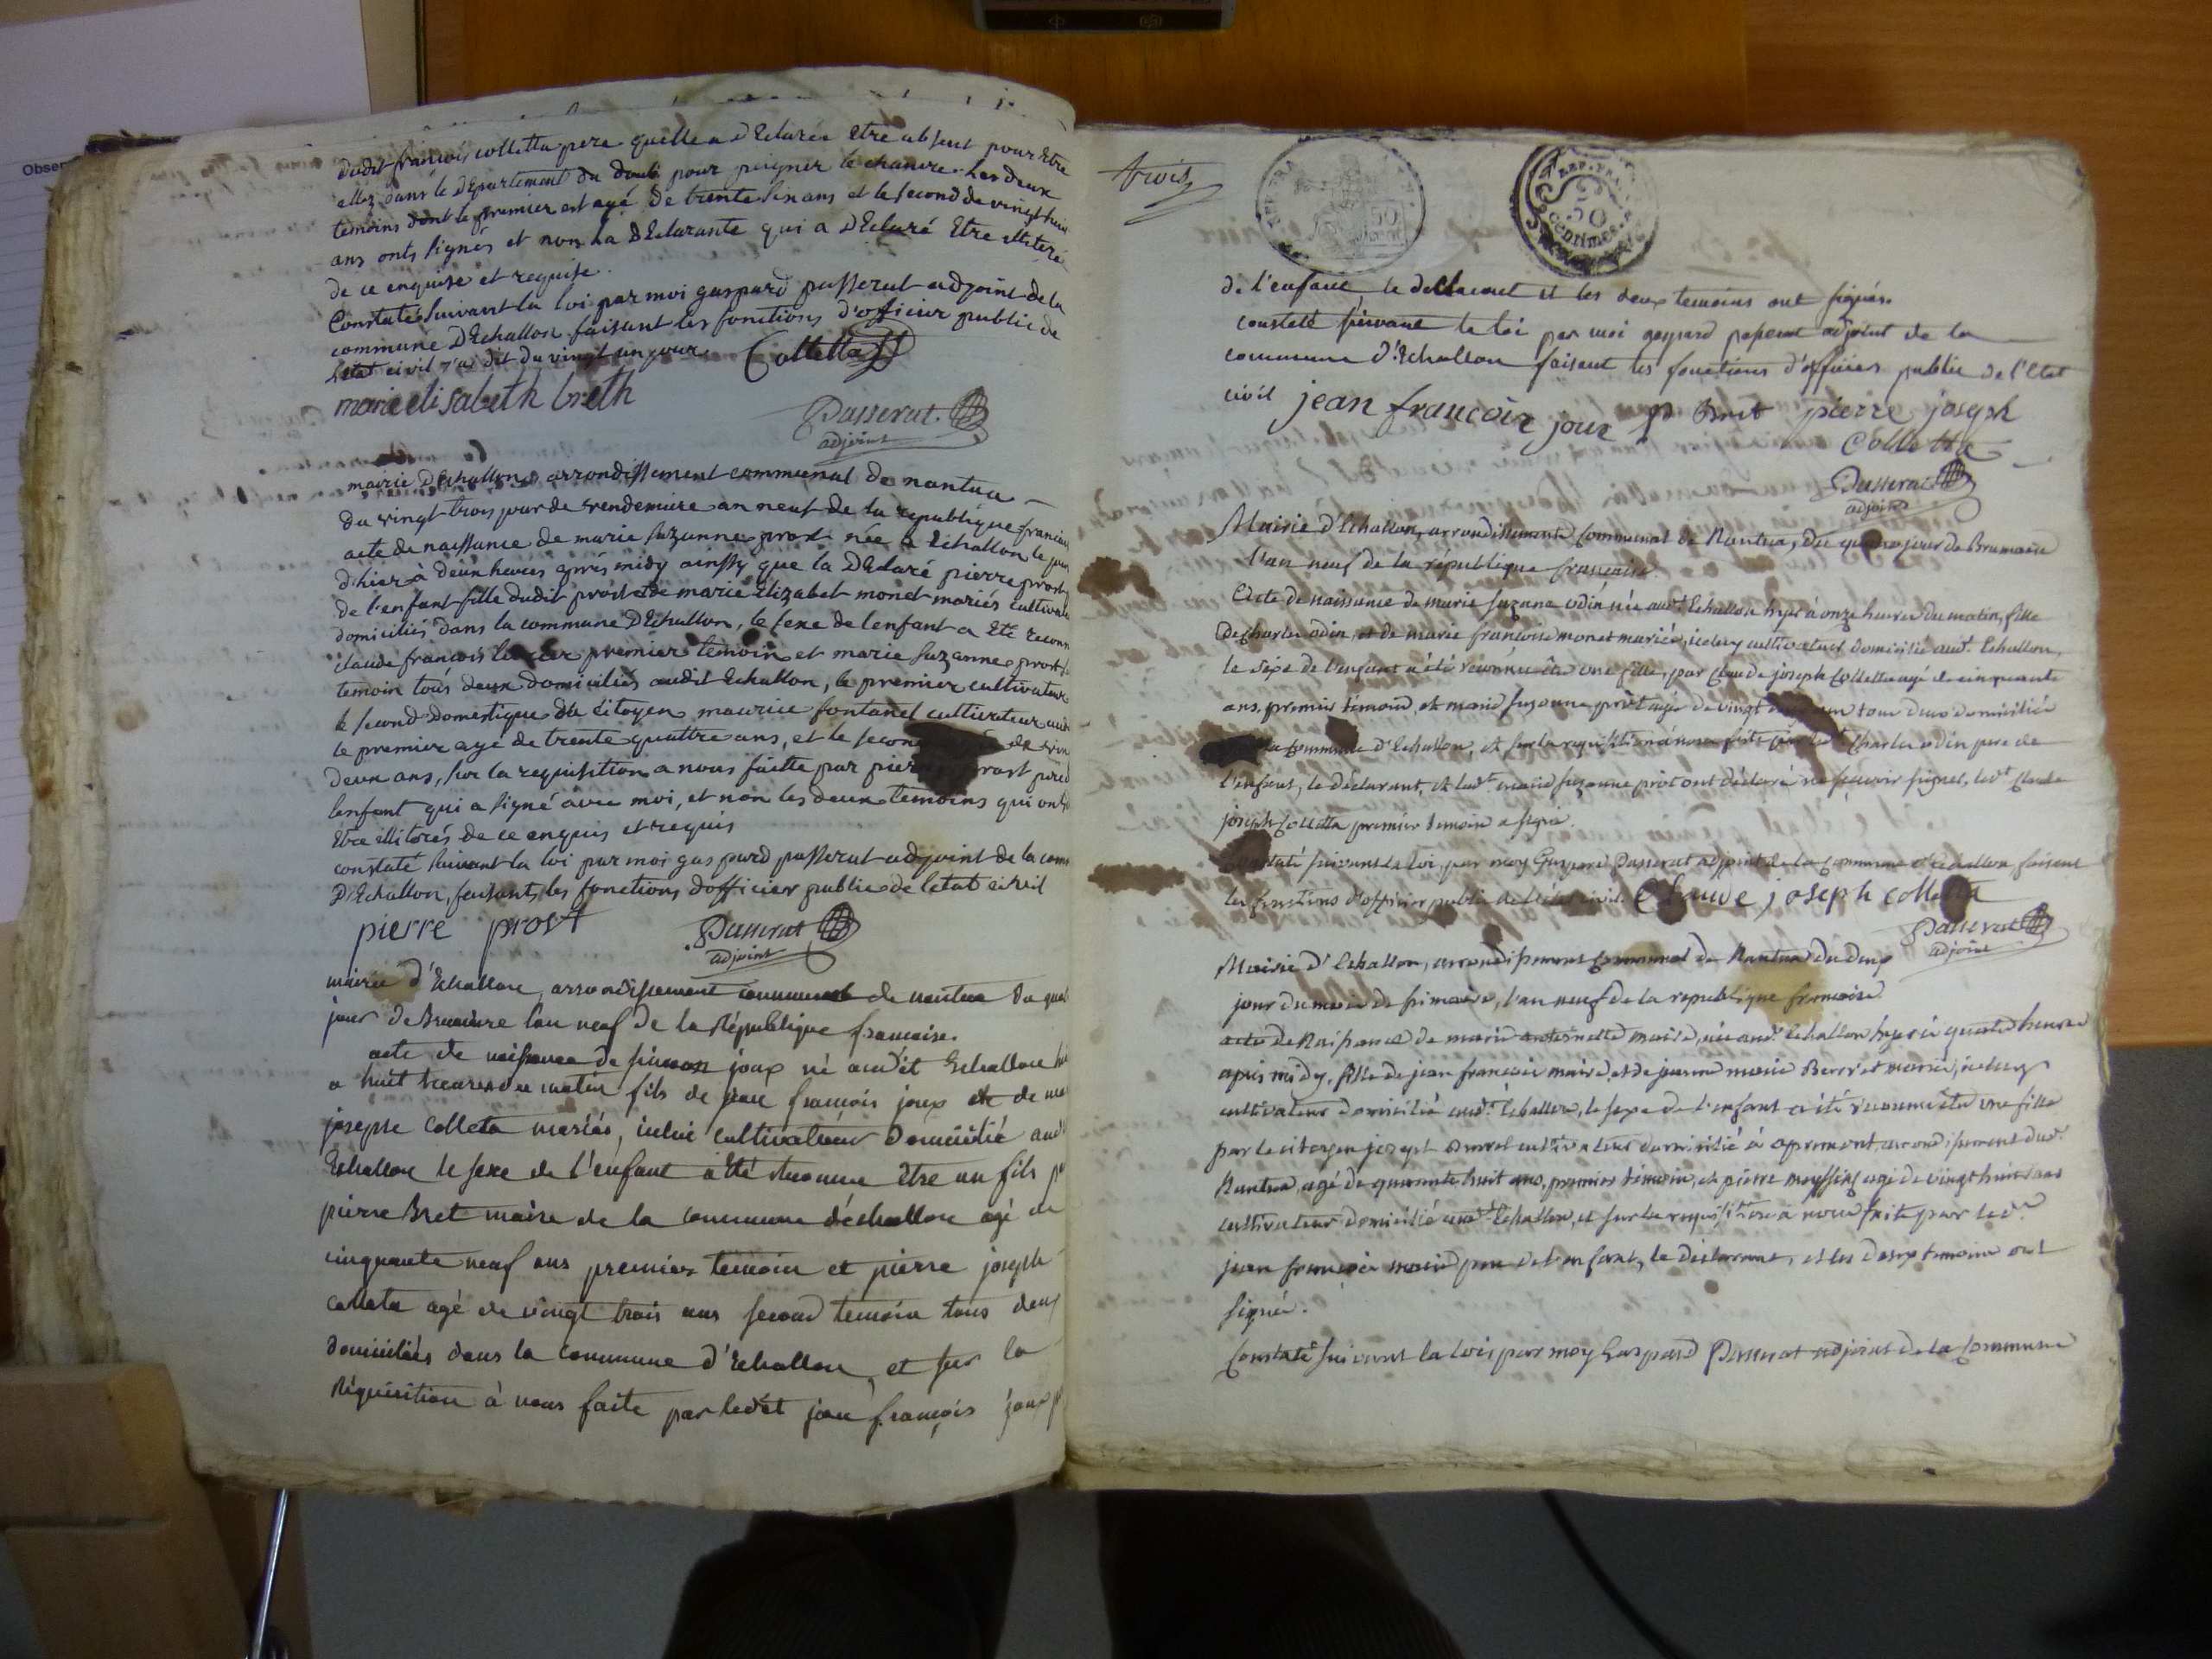 Obser
dudit francois colletta pere quelle a dEclarée Etre absent pour Etre
allez dans le dEpartement du doub pour peigner le chanvre. Les deux
temoins dont le premier est agé de trente six ans et le second de vingt huit
ans onts signés et non la dEclarante qui a dEclaré Etre illiteré
de ce enquise et requise.
Constaté suivant la loi par moi gaspard passerat adjoint de la
commune dEchallon faisant les fonctions d'officier public de
letat civil dit du vingt un jour Colletta
marie elisabeth breth
Passerat
adjoint
mairie dEchallon arrondissement communal de nantua
du vingt trois jour de vendemiaire an neuf de la republique francaise
acte de naissance de marie suzanne prost née a Echallon le jour
d'hier à deux heures aprés midy ainssy que la dEclaré pierre prost
de l'enfant fille dudit prost et de marie Elizabet monet mariés cultivat
domiciliés dans la commune dEchallon, le sexe de lenfant a Eté reconn
claude francois premier temoin et marie suzanne prost
temoin tous deux domiciliés audit Echallon, le premier cultivateur
le second domestique du citoyen maurice fontanel cultivateur aud
le premier agé de trente quattre ans, et le second de vin
deux ans, sur la requisition a nous faitte par pierre prost pere
lenfant qui a signé avec moi, et non les deux temoins qui ont
Etre illitorés de ce enquis et requis
constaté suivant la loi par moi gaspard passerat adjoint de la com
dEchallon, faisant les fonctions dofficier public de letat civil
pierre prost Passerat
adjoint
mairie d'Echallon, arrondissement communal de nantua du qua
jour de Brumaire lan neuf de la République francaise.
acte de naissance de simon joux né audit Echallon
a huit heures du matin fils de jean francois joux et de
joseph Colleta mariés, icelui cultivateur domicilié aud
Echallon le sexe de l'enfant a Eté reconnu Etre un fils p
pierre Bret maire de la commune déchallon agé de
cinquante neuf ans premier temoin et pierre joseph
colleta agé de vingt trois ans second temoin tous deux
domiciliés dans la commune d'Echallon, et sur la
Réquisition à nous faite par ledit jean françois joux p
trois
REP. FRA
50
REP. FRA
50
centimes
de l'enfant le déclarant et les deux temoins ont signés.
constaté suivant la loi par moi gaspard passerat adjoint de la
commune d'Echallon faisant les fonctions d'officier public de l'Etat
civil jean francoir joux P Bret pierre joseph
Collette
Passerat
adjoint
Mairie d'Echallon, arrondissement Communal de Nantua, du jour de Brumaire
l'an neuf de la république française
Acte de naissance de marie suzane odin née aud.t Echallon hyer à onze heures du matin, fille
de charles odin, et de marie francoise monet mariés, iceluy cultivateur domicilié aud.t Echallon,
le sexe de l'enfant a été reconnu être une fille, par Claude joseph Colletta agé de cinquante
ans, premier témoin, et marie suzanne prôt agée de vingt un tous deux domiciliés
la Commune d'Echallon, et sur la requisition à nous faite par led.t Charles odin pere de
l'enfant, le déclarant, et lad.t marie suzanne prôt ont déclaré ne sçavoir signer, led.t Claude
joseph Colletta premier témoin a signé.
Constaté suivant la loi, par moy Gaspard Passerat adjoint de la Commune d'echallon faisant
les fonctions d'officier public de l'état civil. Claude joseph colletta
Passerat
adjoint
Mairie d'Echallon, arrondissement Communal de Nantua du deux
jour du mois de frimaire, l'an neuf de la republique francoise
acte de Naissance de marie antoinette maire, née aud.t Echallon hyer à quatre heures
apres midy, fille de jean francois maire, et de jeanne marie mariés, iceluy
cultivateur domicilié aud.t Echallon, le sexe de l'enfant a été reconnu être une fille
par le citoyen joseph cultivateur domicilié à apremont arrondissement dud.t
Nantua, agé de quarante huit ans, premier témoin, et pierre agé de vingt huit ans
cultivateur domicilié aud.t Echallon, et sur la requisition à nous faite par led.t
jean francois maire pere de l'enfant, le déclarant, et les deux temoins ont
signé.
Constaté suivant la loix par moy Gaspard Passerat adjoint de la Commune